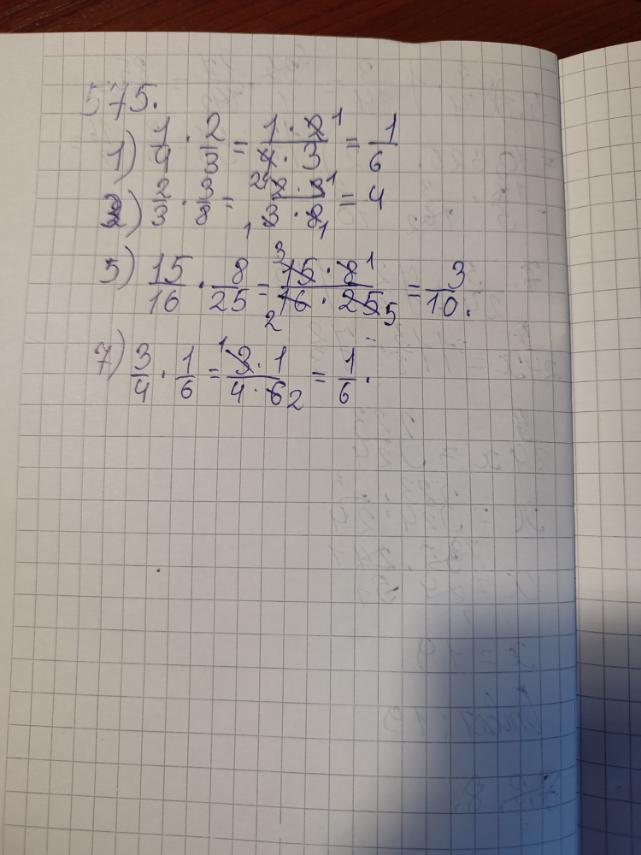 575.
1) 1/4 · 2/3 = 1 · 2 1/4 · 3 = 1/6
2) 2/3 · 3/8 = 2 2 · 3 1/1 3 · 8 1 = 4
5) 15/16 · 8/25 = 3 15 · 8 1/2 16 · 25 5 = 3/10.
7) 3/4 · 1/6 = 1 3 · 1/4 · 6 2 = 1/6.